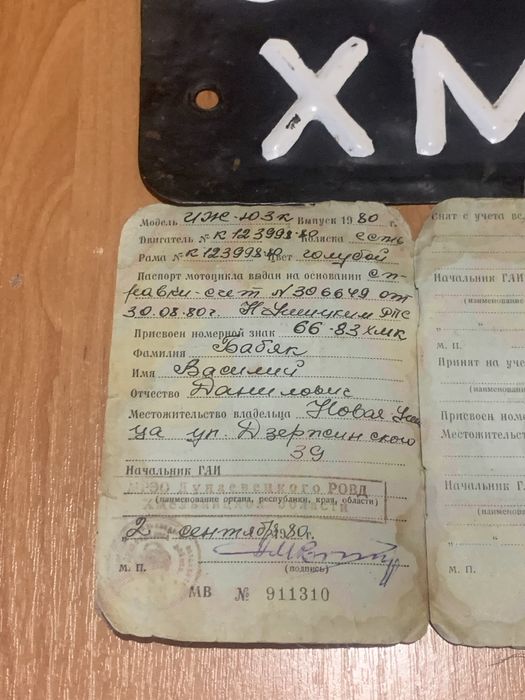 ХМ
Модель ИЖ-ЮЗК Выпуск 1980 г.
Двигатель № К 123998-80 Коляска есть
Рама № К 123998-80 Цвет голубой
Паспорт мотоцикла выдан на основании сп-
равки-счет № 306649 от
30.08.80г. Н Ушицким РПС
Присвоен номерной знак 66-83 ХМК
Фамилия Бабяк
Имя Василий
Отчество Данилович
Местожительство владельца Новая Уши
ца ул. Дзержинского
39
Начальник ГАИ
МРЭО Дунаевецкого РОВД
(наименование органа, республики, края, области)
Хмельницкой области
„2 сентября 1980г.
М. П. (подпись)
МВ № 911310
Снят с учета
Начальник ГАИ
М. П.
Принят на уче
Присвоен номерной
Местожительство
Начальник ГАИ
М. П.